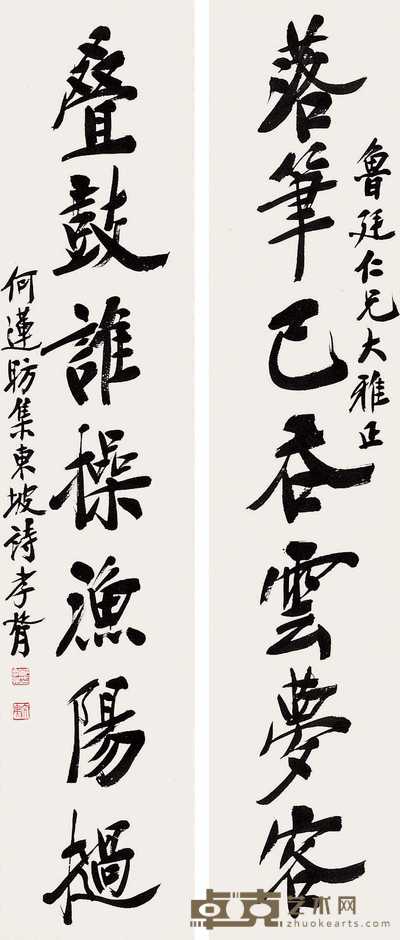 魯廷仁兄大雅正
落筆已吞雲夢客
叠鼓誰操漁陽撾
何蓮昉集東坡詩孝胥
卓克艺术网
zhuokearts.com